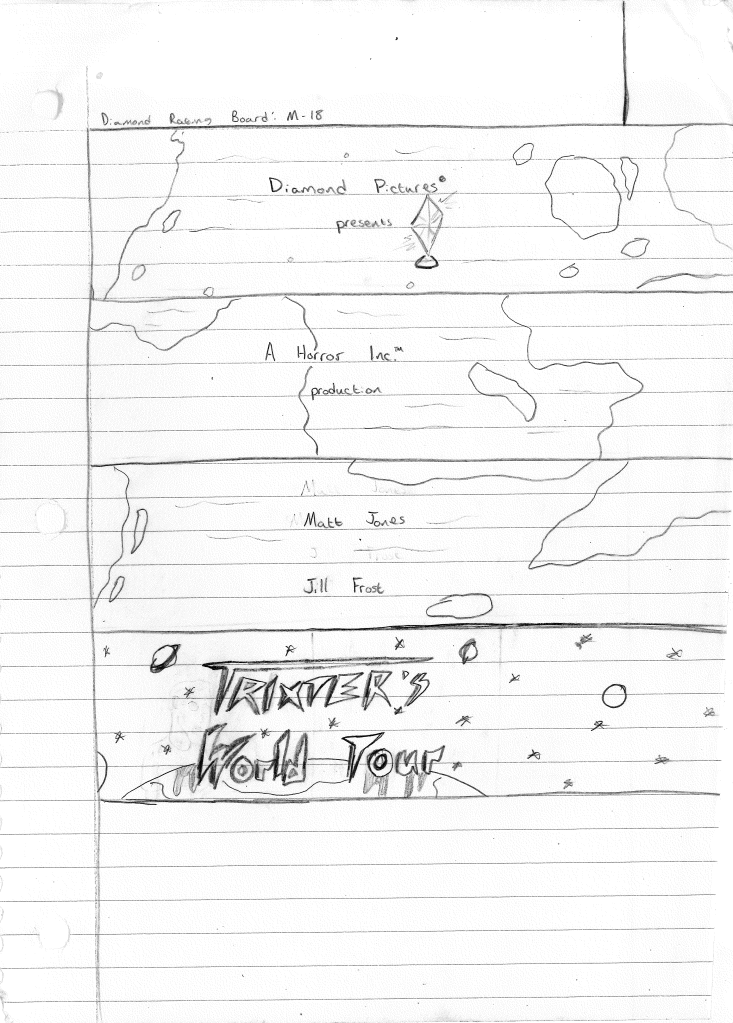 Diamond Rating Board: M-18
Diamond Pictures®
presents
A Horror Inc.™
production
Matt Jones
Jill Frost
TRIXTER'S
World Tour